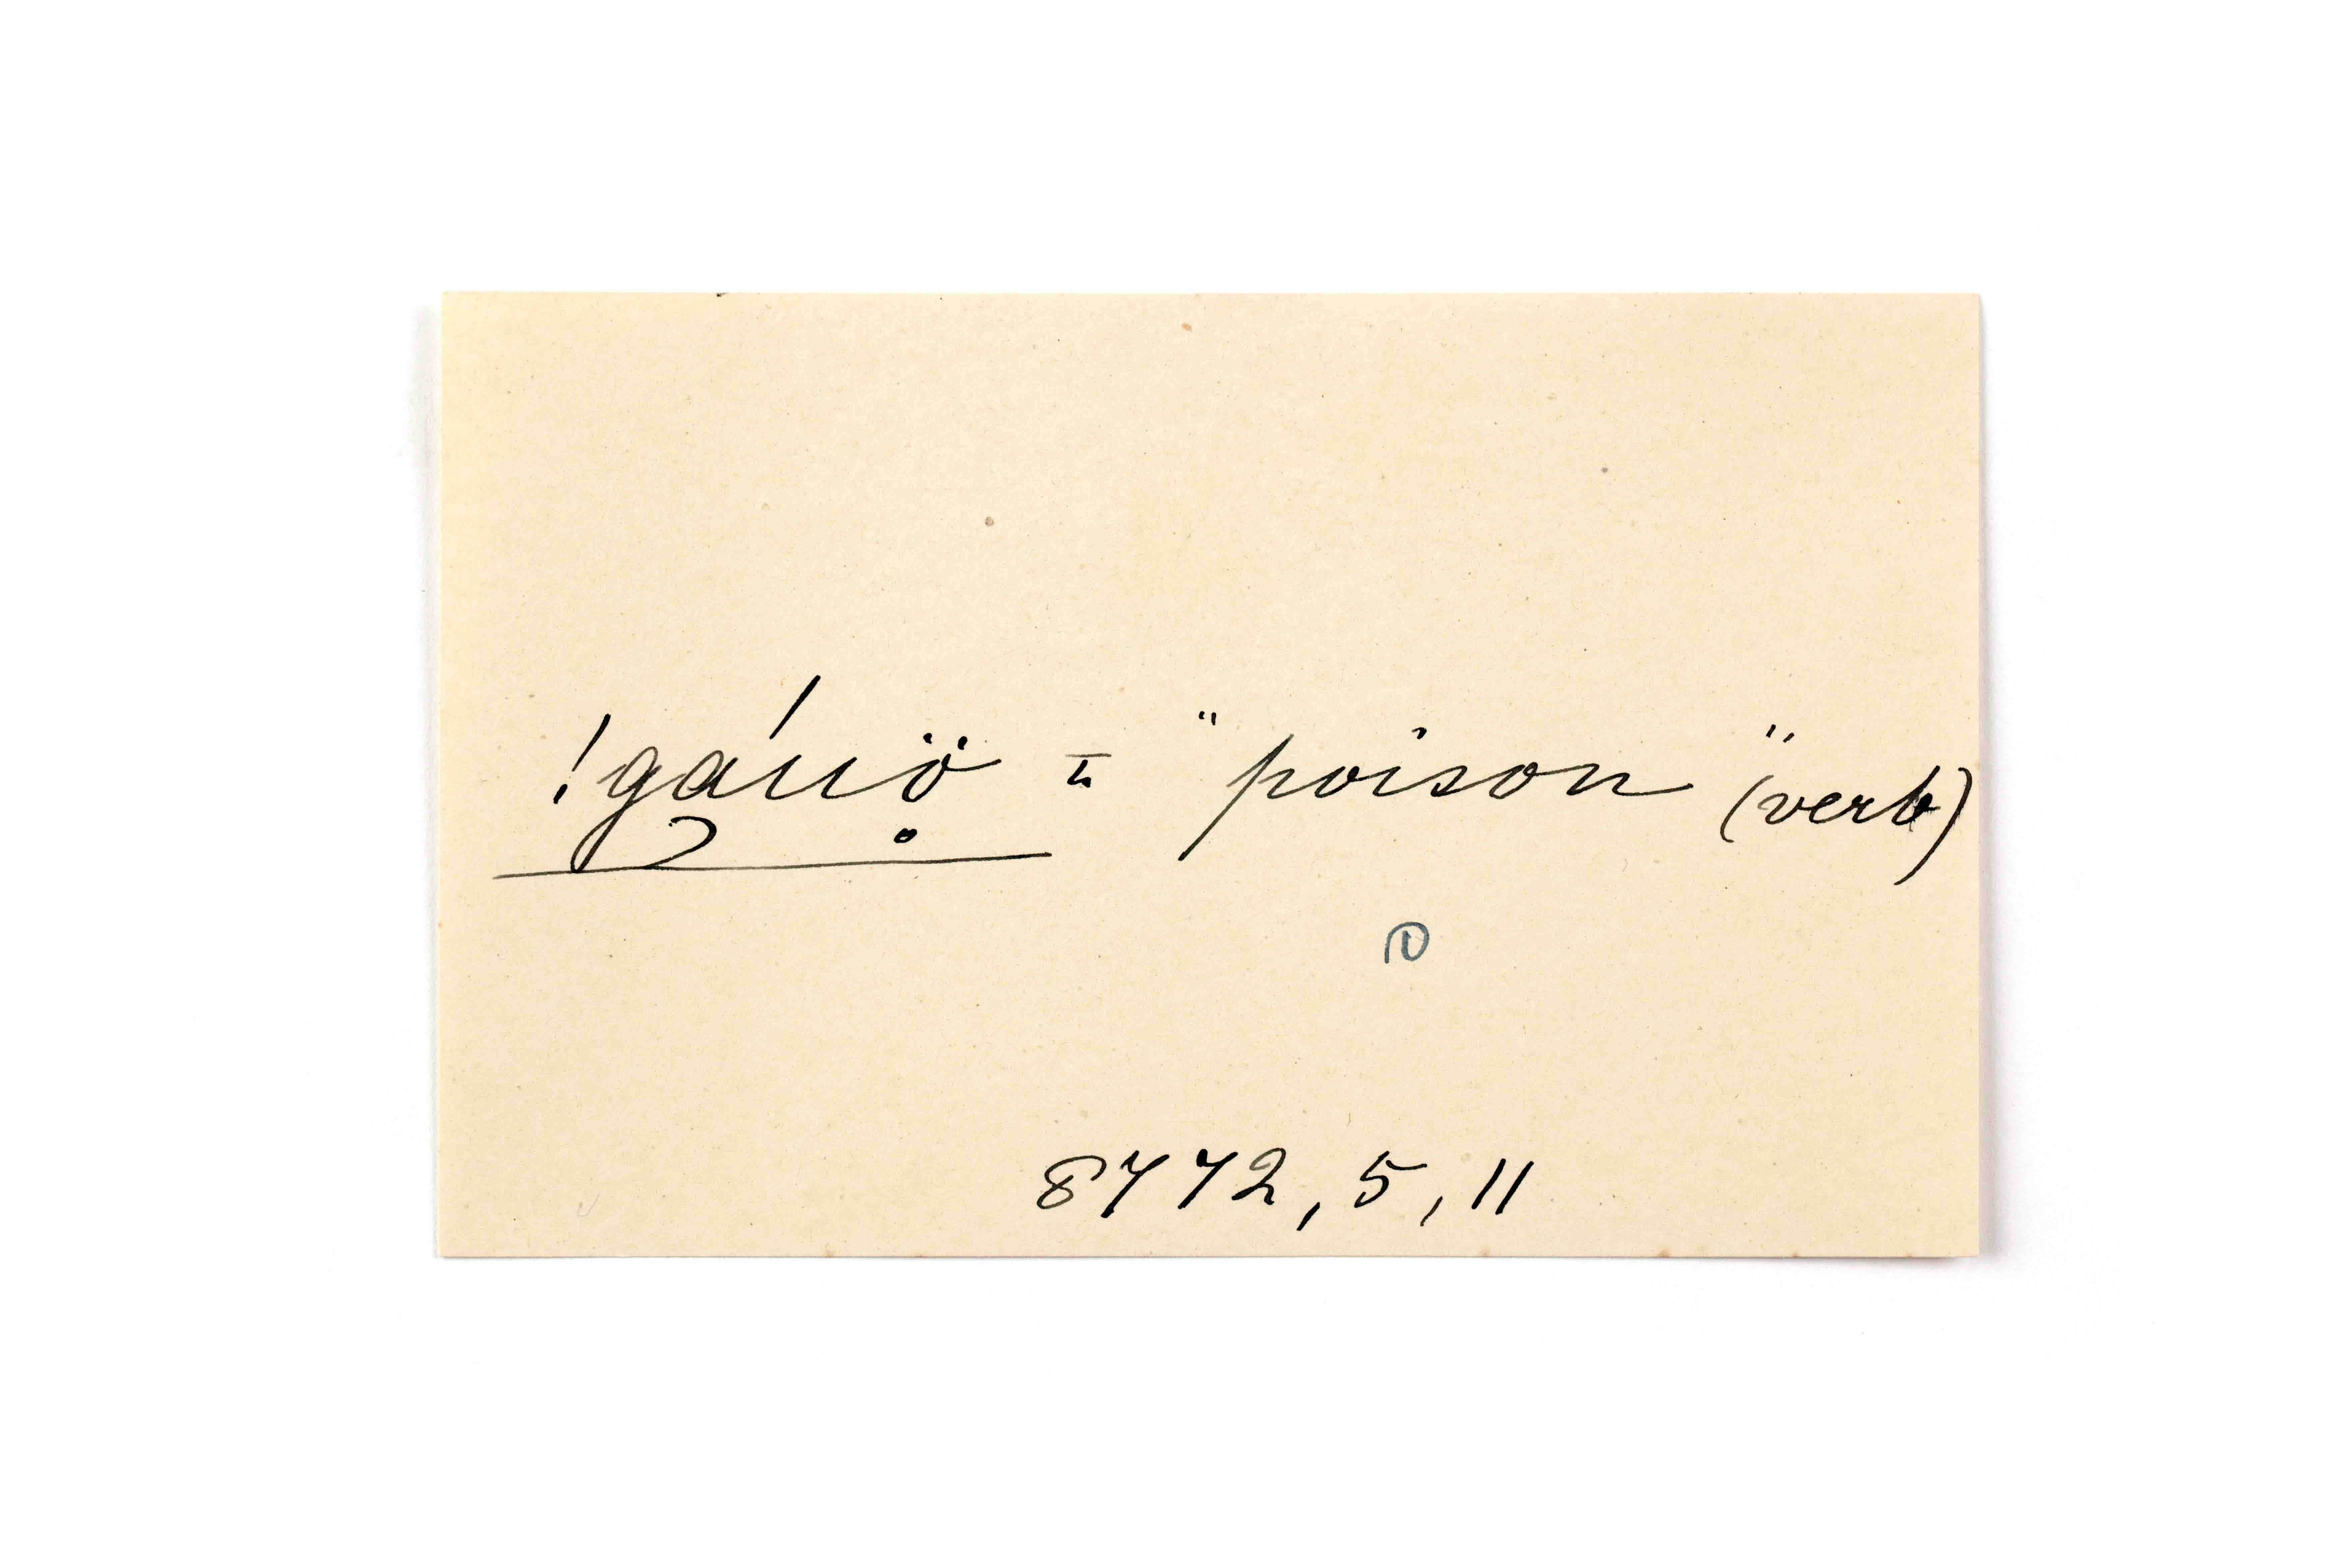 !gáuọ̈ = "poison" (verb)
D
8772, 5, 11